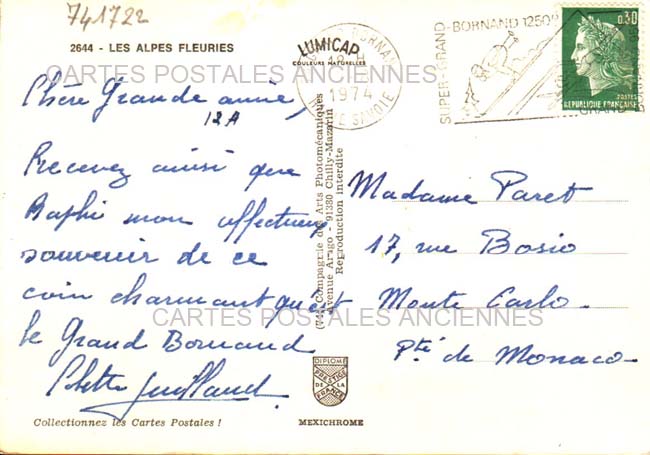 741722
2644 - LES ALPES FLEURIES
LUMICAP
COULEURS NATURELLES
1974
SUPER-GRAND-BORNAND 1250
0,30
POSTES
REPUBLIQUE FRANÇAISE
CARTES POSTALES ANCIENNES
Chère Grande amie,
12A
Recevez ainsi que
Raphi mon affectueux
souvenir de ce
coin charmant qu'est
le Grand Bornand
Guilland
Compagnie des Arts Photomécaniques
avenue Arago - 91380 Chilly-Mazarin
Reproduction interdite
Madame Paret
17, rue Bosio
Monte Carlo
Pté de Monaco
CARTES POSTALES ANCIENNES
DIPLOME
PRESTIGE
DE LA
FRANCE
Collectionnez les Cartes Postales !
MEXICHROME